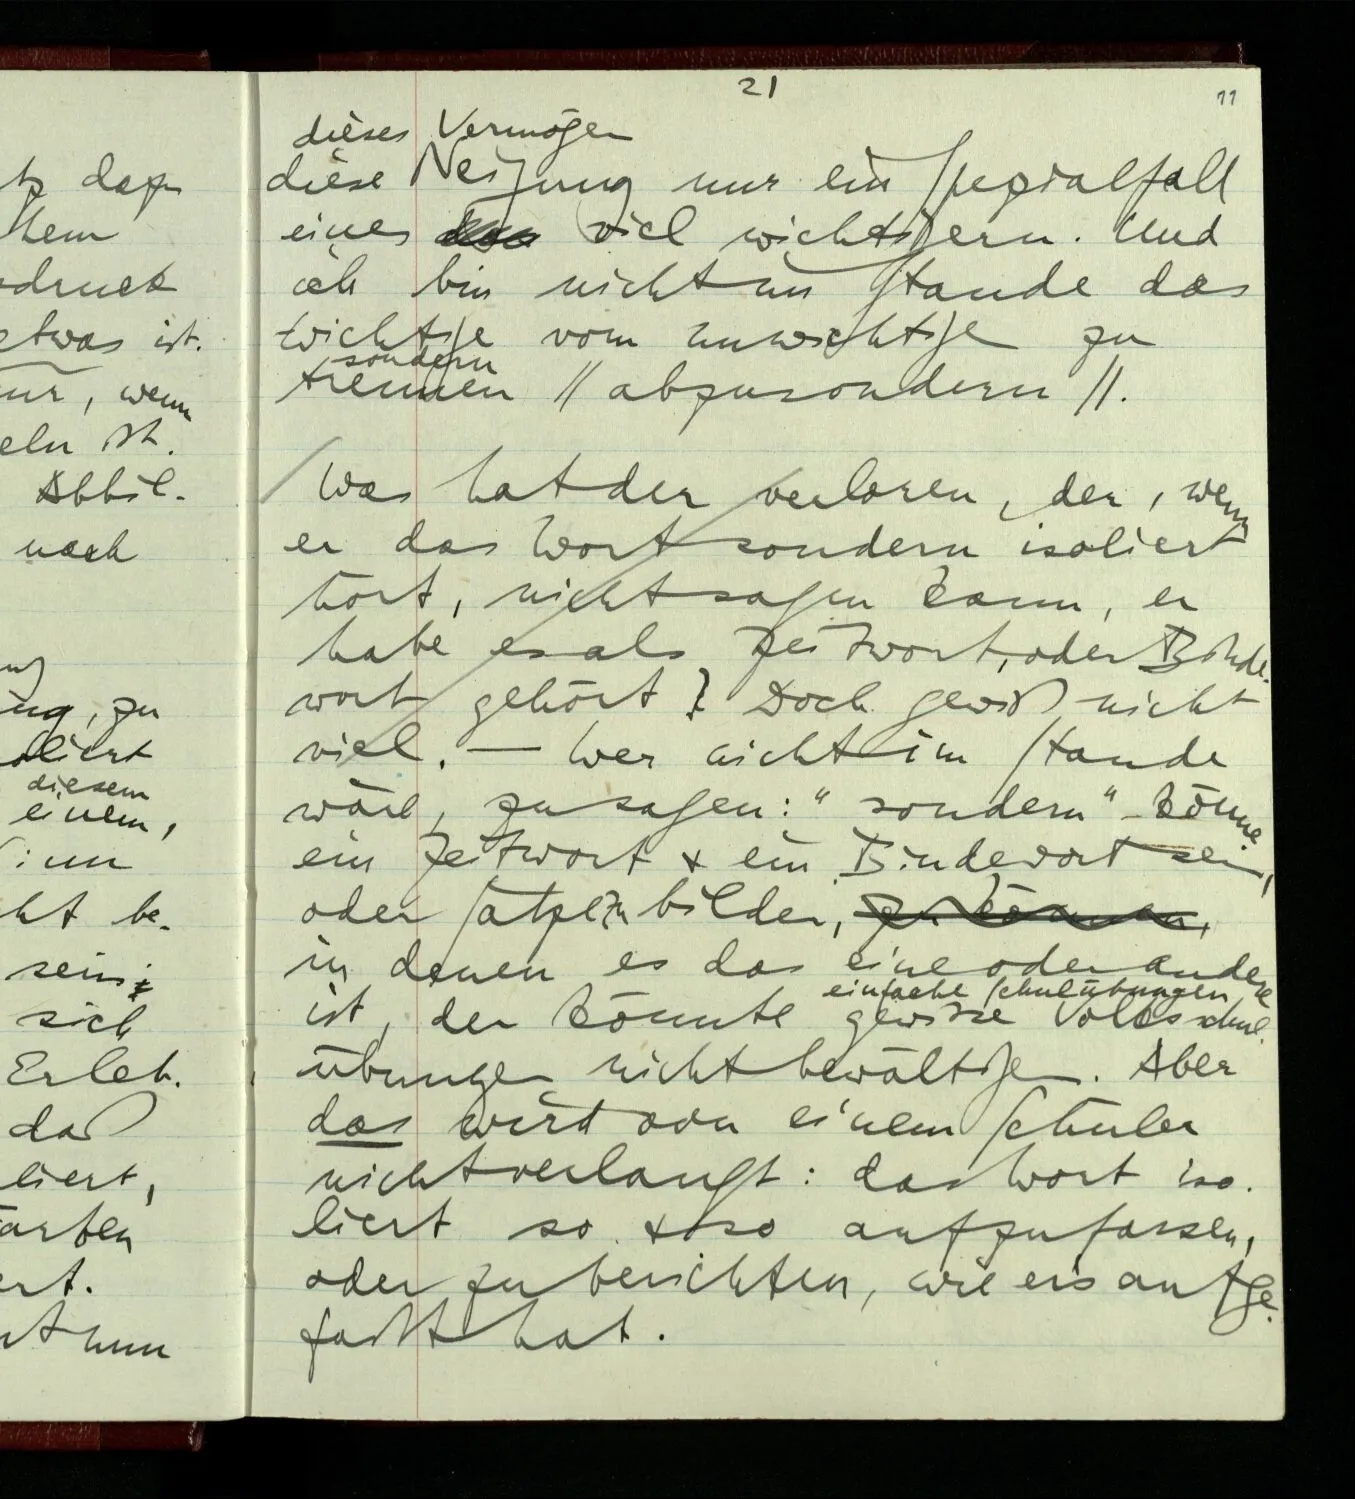 tz dazu
hem
sdruck
etwas ist.
nur, wenn
eln ist.
Abbil-
noch
ung
ung, zu
oliert
diesem
einem,
im
cht be-
sein;
sich
Erleb-
daß
liert,
arben
ert.
nun
21
11
dieses Vermögen
diese Neigung nur ein Spezialfall
eines viel wichtigern. Und
ich bin nicht im Stande das
wichtige vom unwichtige zu
sondern
trennen // abzusondern //.
Was hat der verloren, der, wenn
er das Wort sondern isoliert
hört, nicht sagen kann, er
habe es als Zeitwort, oder Binde-
wort gehört? Doch gewiß nicht
viel. — Wer nicht im Stande
wäre, zu sagen: "sondern" könne
ein Zeitwort & ein Bindewort sein,
oder Sätze zu bilden, zu können,
in denen es das eine oder andere
einfache Schulübungen
ist, der könnte gewisse Volksschul-
übungen nicht bewältigen. Aber
das wird von einem Schüler
nicht verlangt: das Wort iso-
liert so & so aufzufassen,
oder zu berichten, wie er's aufge-
faßt hat.